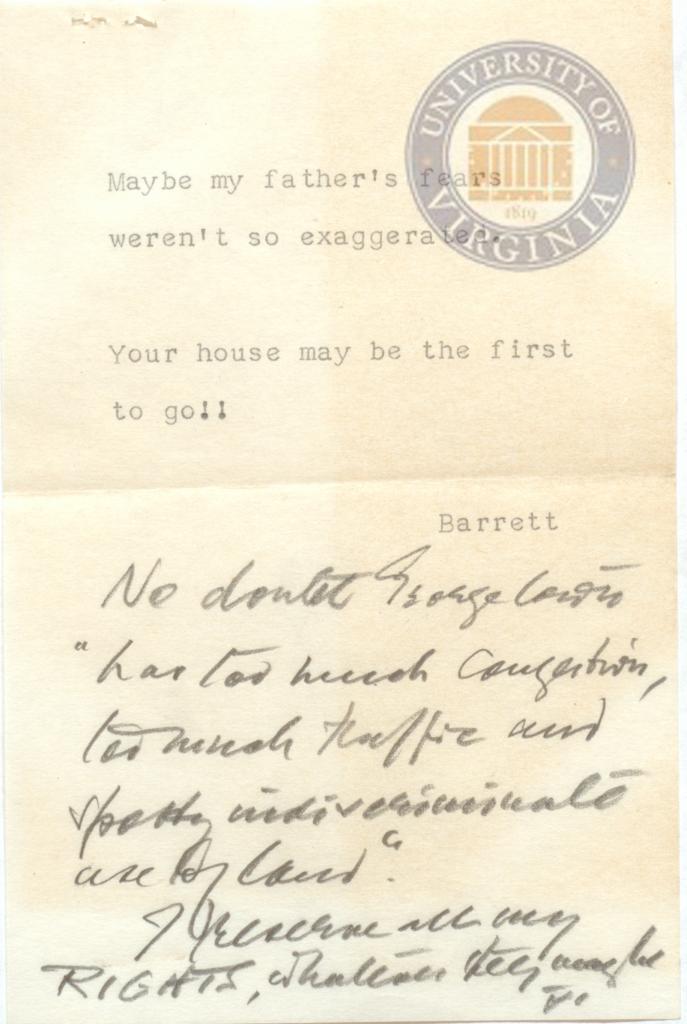 UNIVERSITY OF
VIRGINIA
1819
Maybe my father's fears
weren't so exaggerated.
Your house may be the first
to go!!
Barrett
No doubt Georgetown
"has too much congestion,
too much traffic and
spotty indiscriminate
use of land".
I reserve all my
RIGHTS, whatever they may be